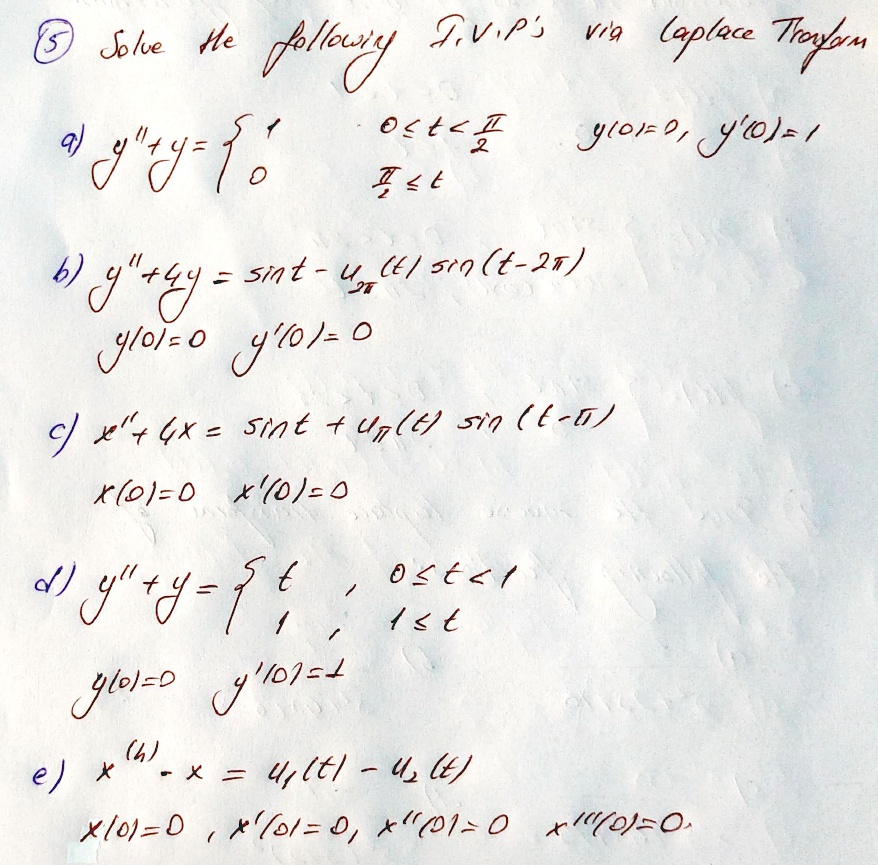 ⑤ Solve the following I.V.P's via Laplace Transform
a) y''+y = { 1 0≤t<π/2 y(0)=0, y'(0)=1
0 π/2 ≤ t
b) y''+4y = sint - u_2π(t) sin(t-2π)
y(0)=0 y'(0)=0
c) x''+4x = sint + u_π(t) sin(t-π)
x(0)=0 x'(0)=0
d) y''+y = { t , 0≤t<1
1 , 1≤t
y(0)=0 y'(0)=1
e) x^(4) - x = u_1(t) - u_2(t)
x(0)=0, x'(0)=0, x''(0)=0 x'''(0)=0.